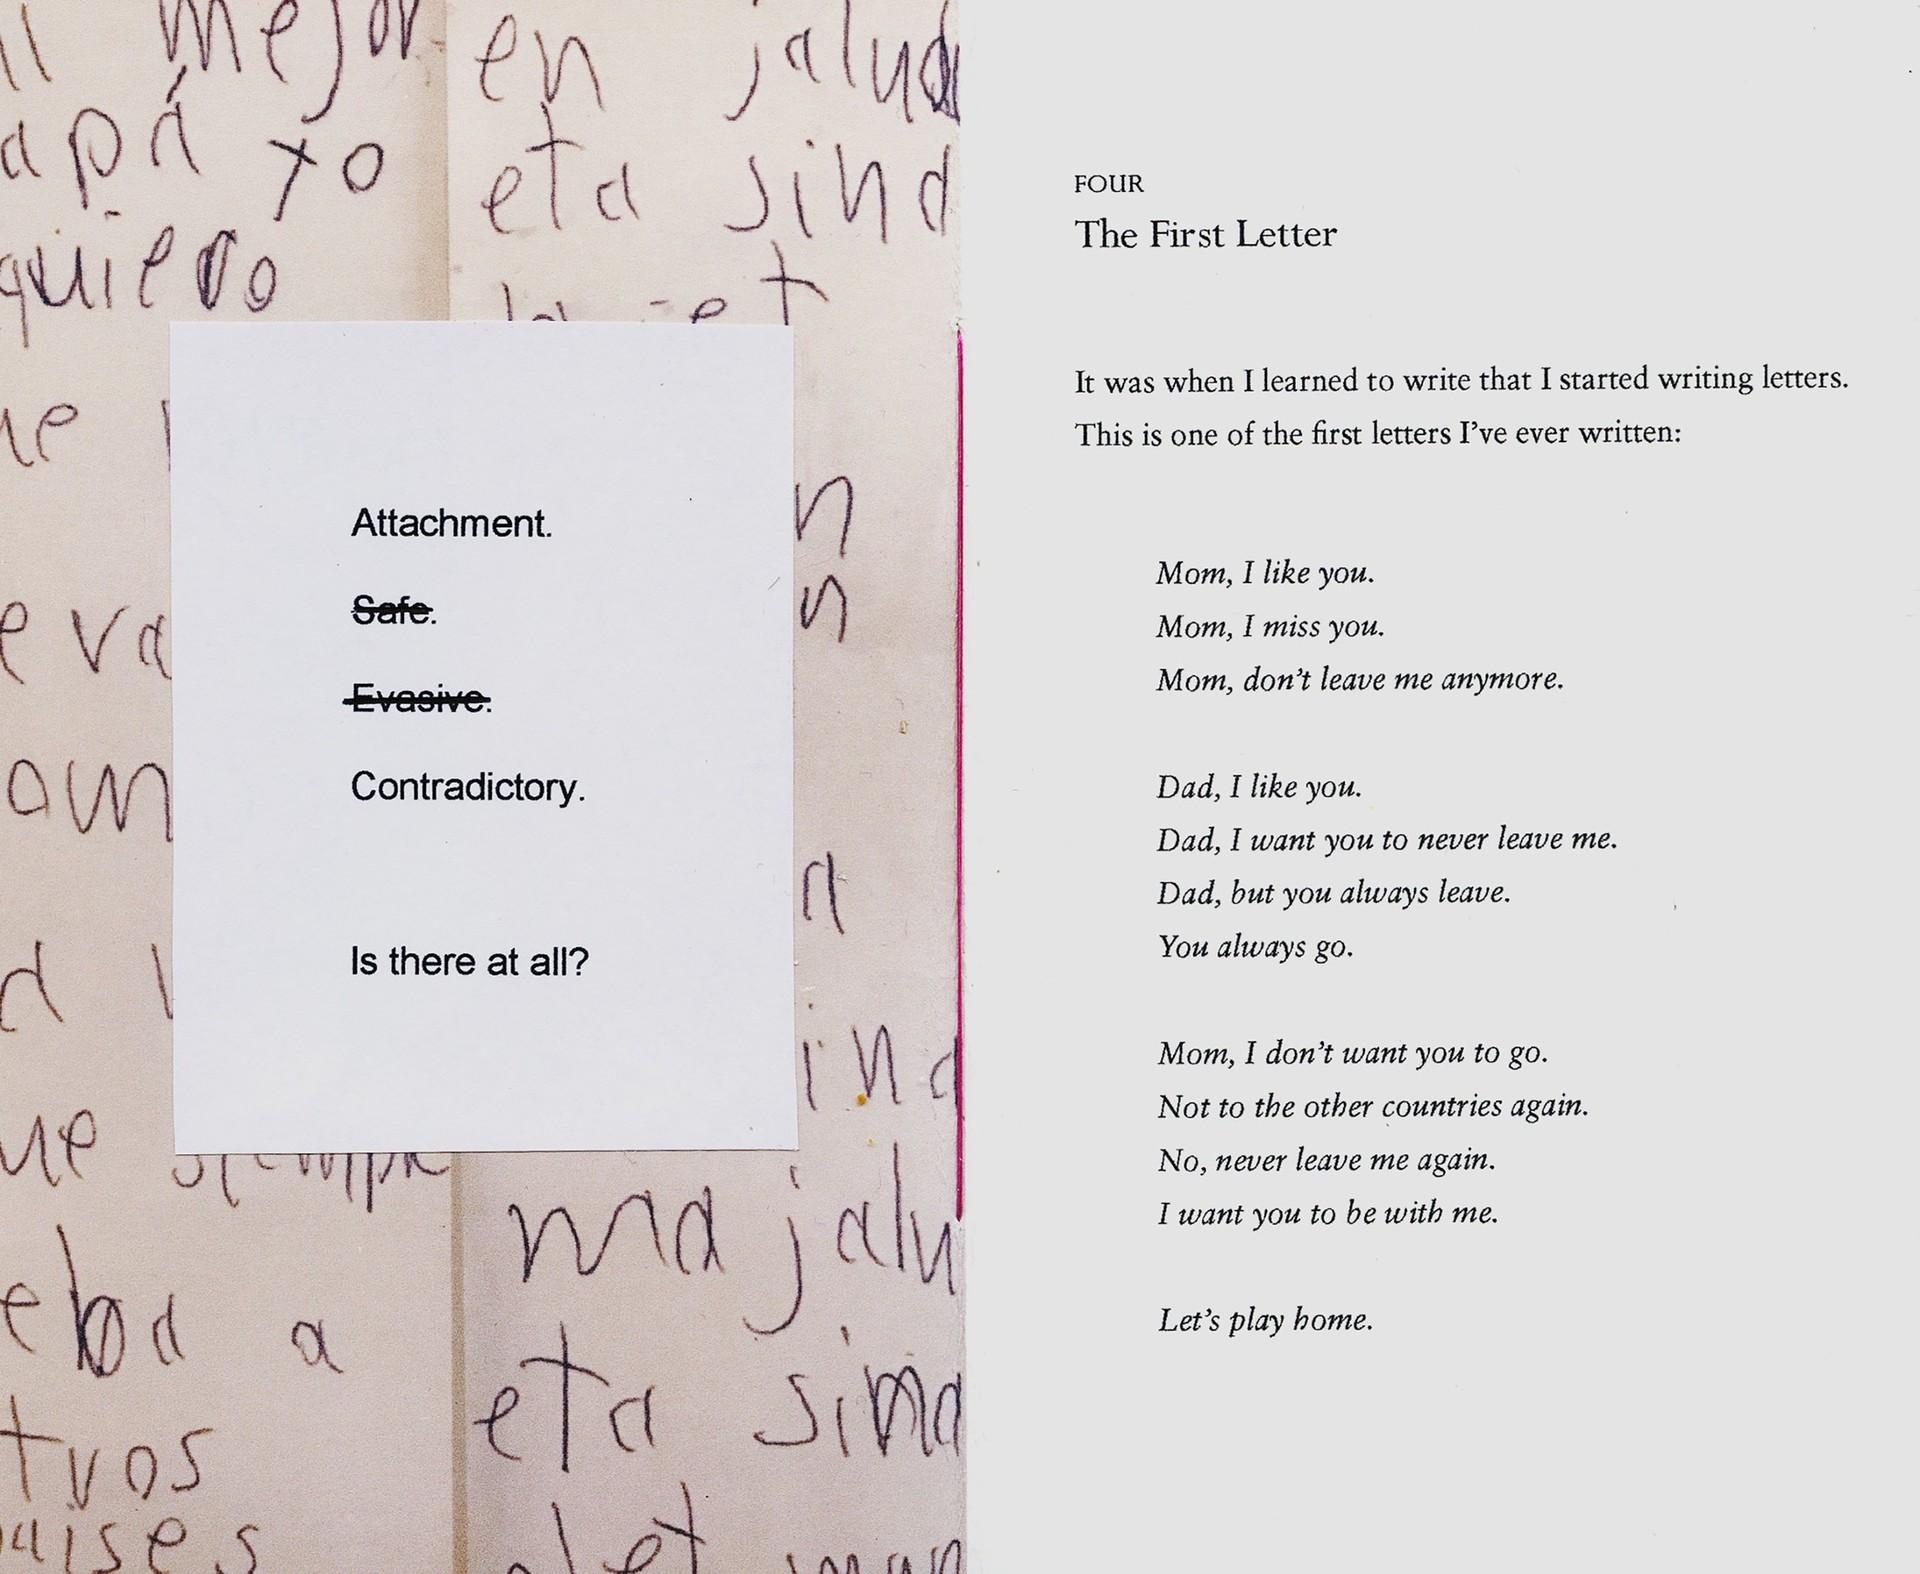 mejor
apá yo
quiero
a
tros
aises
en jalud
eta sind
ma jalu
eta sima
Attachment.
Safe.
Evasive.
Contradictory.
Is there at all?
FOUR
The First Letter
It was when I learned to write that I started writing letters.
This is one of the first letters I've ever written:
Mom, I like you.
Mom, I miss you.
Mom, don't leave me anymore.
Dad, I like you.
Dad, I want you to never leave me.
Dad, but you always leave.
You always go.
Mom, I don't want you to go.
Not to the other countries again.
No, never leave me again.
I want you to be with me.
Let's play home.